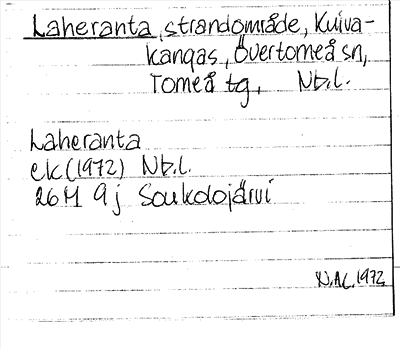 Laheranta, strandområde, Kuiva-
kangas, Övertorneå sn,
Torneå tg, Nb.l.
Laheranta
ek (1972) Nb.l.
26M 9j Soukolojärvi
N.A.L. 1972